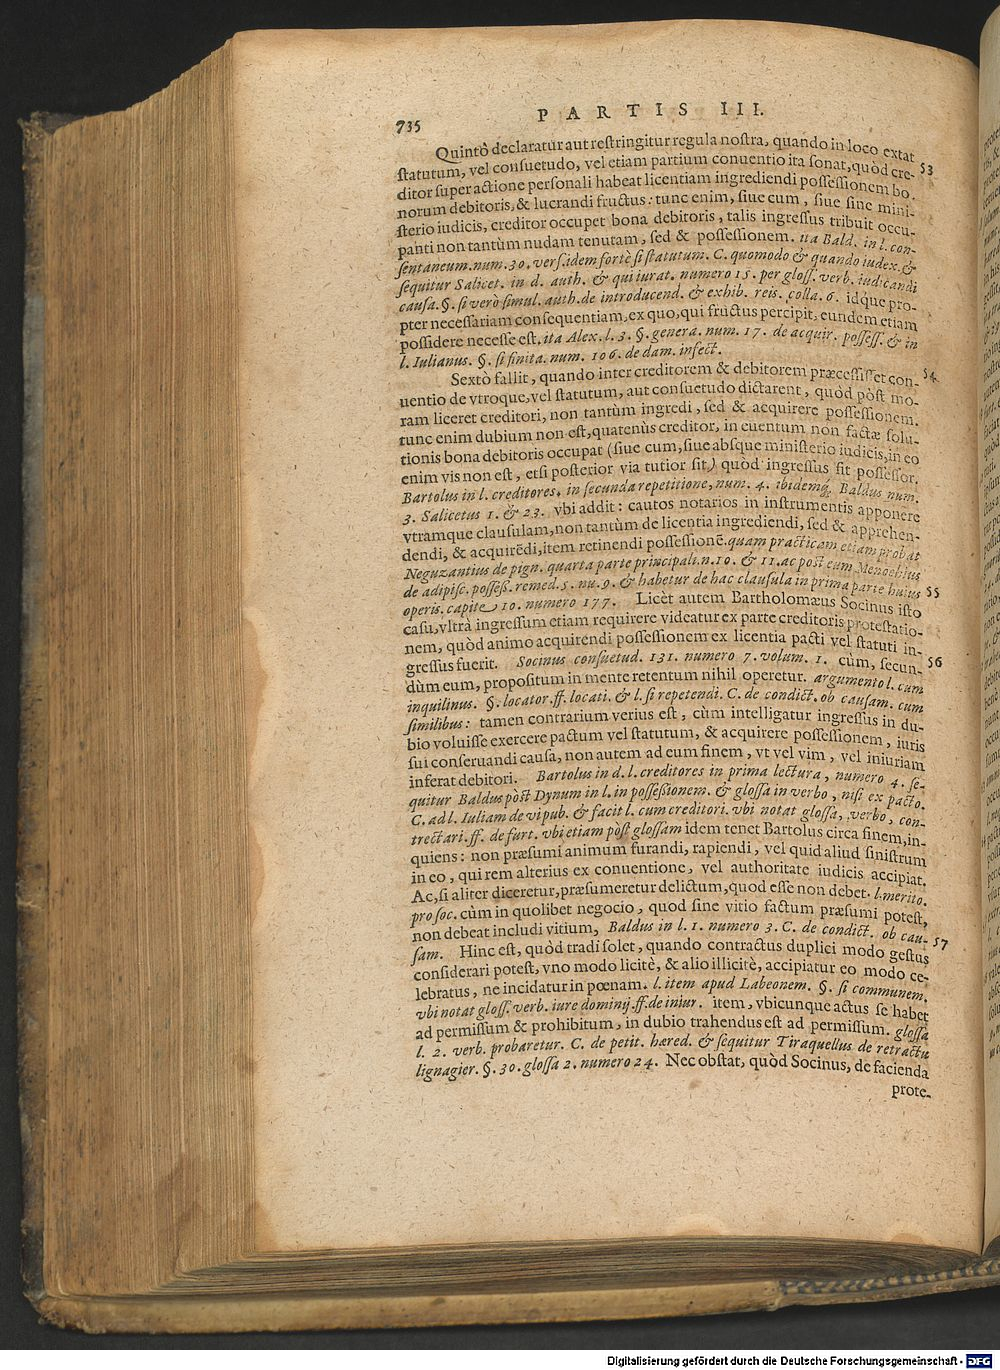 735 PARTIS III.
Quintò declaratur aut restringitur regula nostra, quando in loco extat 53
statutum, vel consuetudo, vel etiam partium conuentio ita sonat, quòd cre-
ditor super actione personali habeat licentiam ingrediendi possessionem bo-
norum debitoris, & lucrandi fructus: tunc enim, siue cum, siue sine mini-
sterio iudicis, creditor occupet bona debitoris, talis ingressus tribuit occu-
panti non tantùm nudam tenutam, sed & possessionem. ita Bald. in l. con-
sentaneum. num. 30. vers. idem fortè si statutum. C. quomodo & quando iudex. &
sequitur Salicet. in d. auth. & qui iurat. numero 15. per gloss. verb. iudicandi
causa. §. si verò simul. auth. de introducend. & exhib. reis. colla. 6. idque pro-
pter necessariam consequentiam, ex quo, qui fructus percipit, eundem etiam
possidere necesse est. ita Alex. l. 3. §. genera. num. 17. de acquir. possess. & in
l. Iulianus. §. si finita. num. 106. de dam. infect.
Sextò fallit, quando inter creditorem & debitorem præcessisset con- 54
uentio de vtroque, vel statutum, aut consuetudo dictarent, quòd pòst mo-
ram liceret creditori, non tantùm ingredi, sed & acquirere possessionem.
tunc enim dubium non est, quatenùs creditor, in euentum non factæ solu-
tionis bona debitoris occupat (siue cum, siue absque ministerio iudicis, in eo
enim vis non est, etsi posterior via tutior sit) quòd ingressus sit possessor.
Bartolus in l. creditores. in secunda repetitione, num. 4. ibidemq́; Baldus num.
3. Salicetus 1. & 23. vbi addit: cautos notarios in instrumentis apponere
vtramque clausulam, non tantùm de licentia ingrediendi, sed & apprehen-
dendi, & acquirẽdi, item retinendi possessionẽ. quam practicam etiam probat
Neguzantius de pign. quarta parte principali. n. 10. & 11. ac post eum Menochius
de adipisc. possess. remed. 5. nu. 9. & habetur de hac clausula in prima parte huius 55
operis. capite 10. numero 177. Licèt autem Bartholomæus Socinus isto
casu, vltrà ingressum etiam requirere videatur ex parte creditoris protestatio-
nem, quòd animo acquirendi possessionem ex licentia pacti vel statuti in-
gressus fuerit. Socinus consuetud. 131. numero 7. volum. 1. cùm, secun- 56
dùm eum, propositum in mente retentum nihil operetur. argumento l. cum
inquilinus. §. locator. ff. locati. & l. si repetendi. C. de condict. ob causam. cum
similibus: tamen contrarium verius est, cùm intelligatur ingressus in du-
bio voluisse exercere pactum vel statutum, & acquirere possessionem, iuris
sui conseruandi causa, non autem ad eum finem, vt vel vim, vel iniuriam
inferat debitori. Bartolus in d. l. creditores in prima lectura, numero 4. se-
quitur Baldus pòst Dynum in l. in possessionem. & glossa in verbo, nisi ex pacto.
C. ad l. Iuliam de vi pub. & facit l. cum creditori. vbi notat glossa, verbo, con-
trectari. ff. de furt. vbi etiam pòst glossam idem tenet Bartolus circa finem, in-
quiens: non præsumi animum furandi, rapiendi, vel quid aliud sinistrum
in eo, qui rem alterius ex conuentione, vel authoritate iudicis accipiat.
Ac, si aliter diceretur, præsumeretur delictum, quod esse non debet. l. merito.
pro soc. cùm in quolibet negocio, quod sine vitio factum præsumi potest,
non debeat includi vitium, Baldus in l. 1. numero 3. C. de condict. ob cau- 57
sam. Hinc est, quòd tradi solet, quando contractus duplici modo gestus
considerari potest, vno modo licitè, & alio illicitè, accipiatur eo modo ce-
lebratus, ne incidatur in pœnam. l. item apud Labeonem. §. si communem.
vbi notat gloss. verb. iure dominij. ff. de iniur. item, vbicunque actus se habet
ad permissum & prohibitum, in dubio trahendus est ad permissum. glossa
l. 2. verb. probaretur. C. de petit. hæred. & sequitur Tiraquellus de retractu
lignagier. §. 30. glossa 2. numero 24. Nec obstat, quòd Socinus, de facienda
prote-
Digitalisierung gefördert durch die Deutsche Forschungsgemeinschaft - DFG